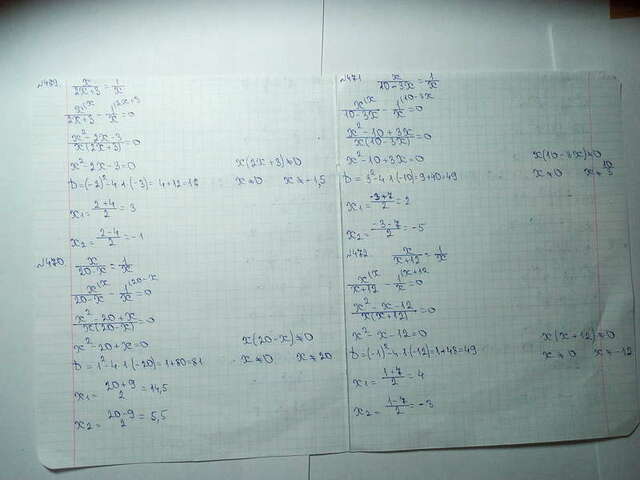 №469 x/(2x+3) = 1/x
x^(1x)/(2x+3) - 1^(12x+3)/x = 0
(x² - 2x - 3)/(x(2x+3)) = 0
x² - 2x - 3 = 0 x(2x+3) ≠ 0
D = (-2)² - 4·1·(-3) = 4+12 = 12 x ≠ 0 x ≠ -1,5
x₁ = (2+4)/2 = 3
x₂ = (2-4)/2 = -1
№470 x/(20-x) = 1/x
x^(1x)/(20-x) - 1^(120-x)/x = 0
(x² - 20 + x)/(x(20-x)) = 0
x² - 20 + x = 0 x(20-x) ≠ 0
D = 1² - 4·1·(-20) = 1+80 = 81 x ≠ 0 x ≠ 20
x₁ = (20+9)/2 = 14,5
x₂ = (20-9)/2 = 5,5
№471 x/(10-3x) = 1/x
x^(1x)/(10-3x) - 1^(110-3x)/x = 0
(x² - 10 + 3x)/(x(10-3x)) = 0
x² - 10 + 3x = 0 x(10-3x) ≠ 0
D = 3² - 4·1·(-10) = 9+40 = 49 x ≠ 0 x ≠ 10/3
x₁ = (-3+7)/2 = 2
x₂ = (-3-7)/2 = -5
№472 x/(x+12) = 1/x
x^(1x)/(x+12) - 1^(1x+12)/x = 0
(x² - x - 12)/(x(x+12)) = 0
x² - x - 12 = 0 x(x+12) ≠ 0
D = (-1)² - 4·1·(-12) = 1+48 = 49 x ≠ 0 x ≠ -12
x₁ = (1+7)/2 = 4
x₂ = (1-7)/2 = -3